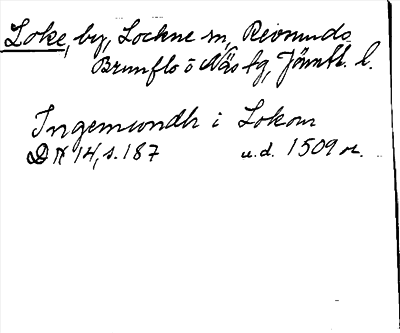 Loke, by, Lockne sn, Revsunds
Brunflo o Näs tg, Jämtl. l.
Ingemundh i Lokom
DN 14, s. 187 u.d. 1509 or.